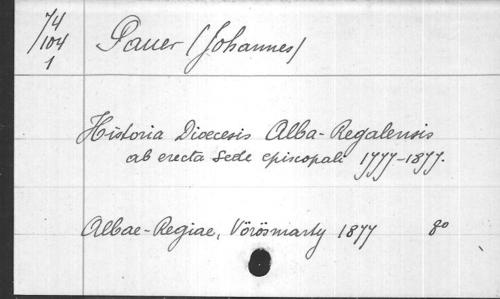 74
/104
1
Pauer (Johannes)
Historia Dioecesis Alba-Regalensis
ab erecta Sede episcopali 1777-1877.
Albae-Regiae, Vörösmarty 1877 8o